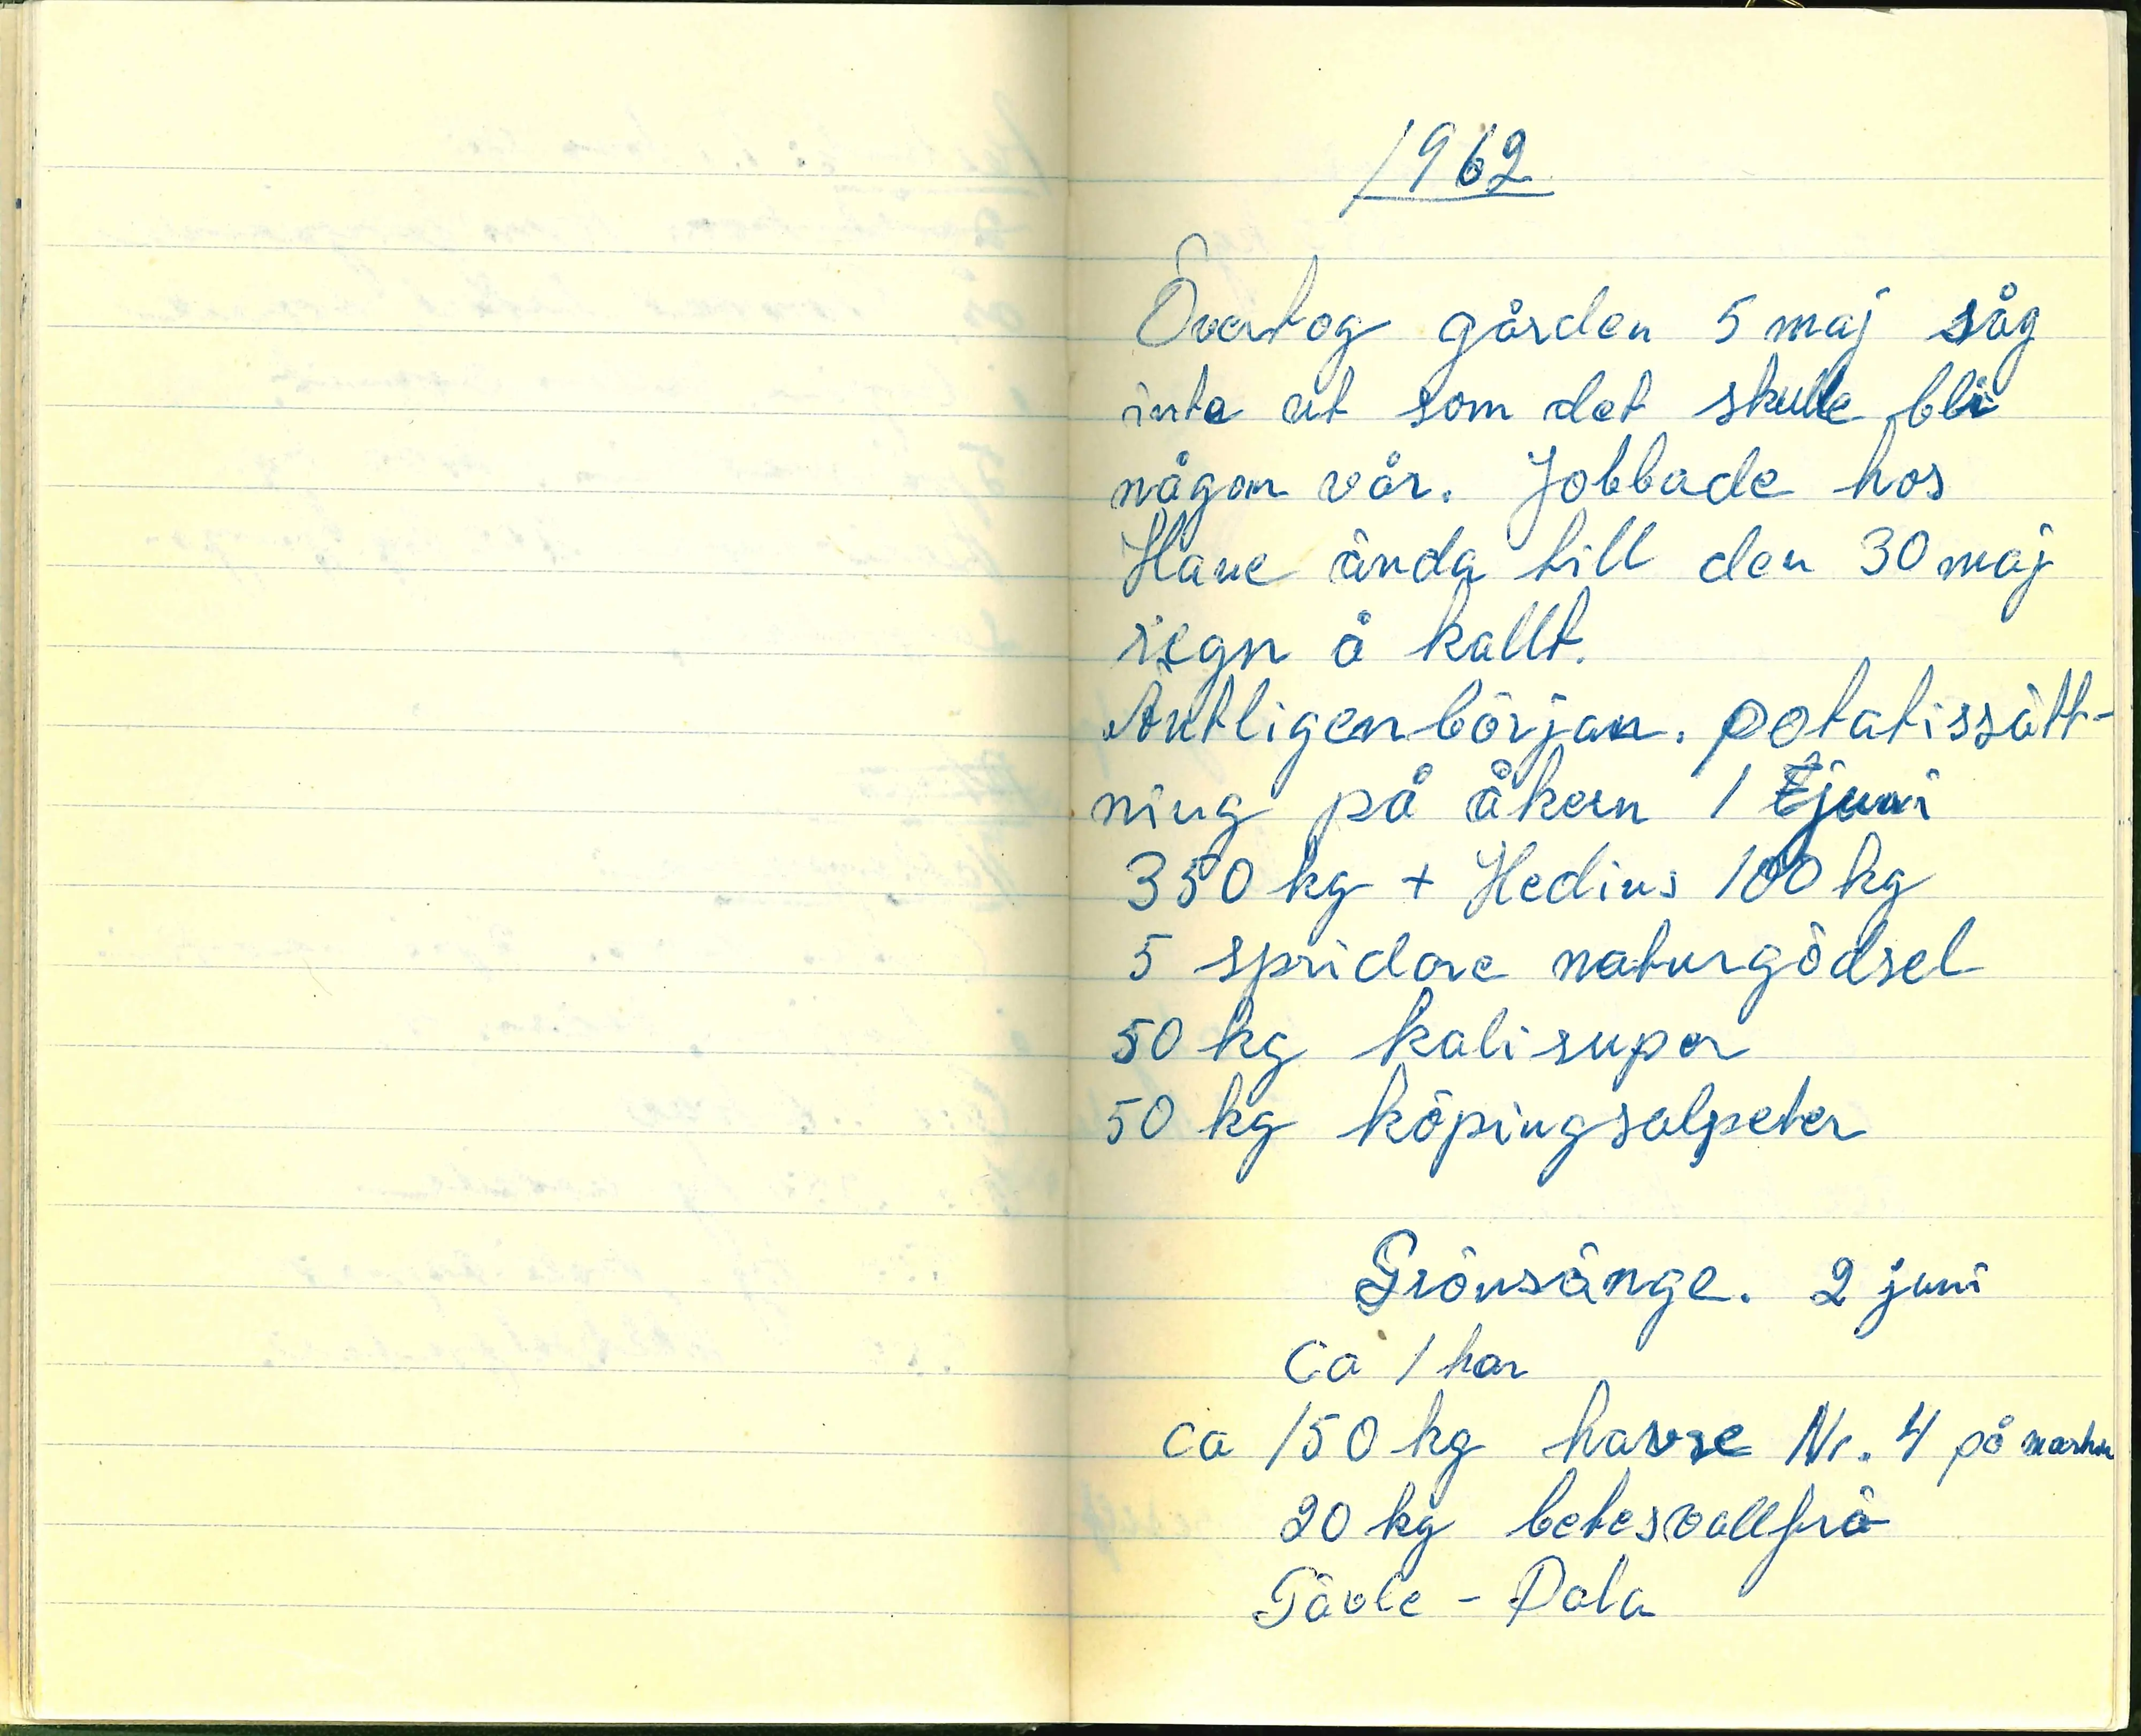 1962
Övertog gården 5 maj såg
inte ut som det skulle bli
någon vår. Jobbade hos
Have ända till den 30 maj
regn å kallt.
Äntligen början. potatissätt-
ning på åkern 1 juni
350 kg + Hedius 100 kg
5 spridare naturgödsel
50 kg kalisuper
50 kg köpingsalpeter
Grönsänge. 2 juni
ca 1 har
ca 150 kg havre Nr. 4 på
20 kg betesvallfrö
Gävle - Dala